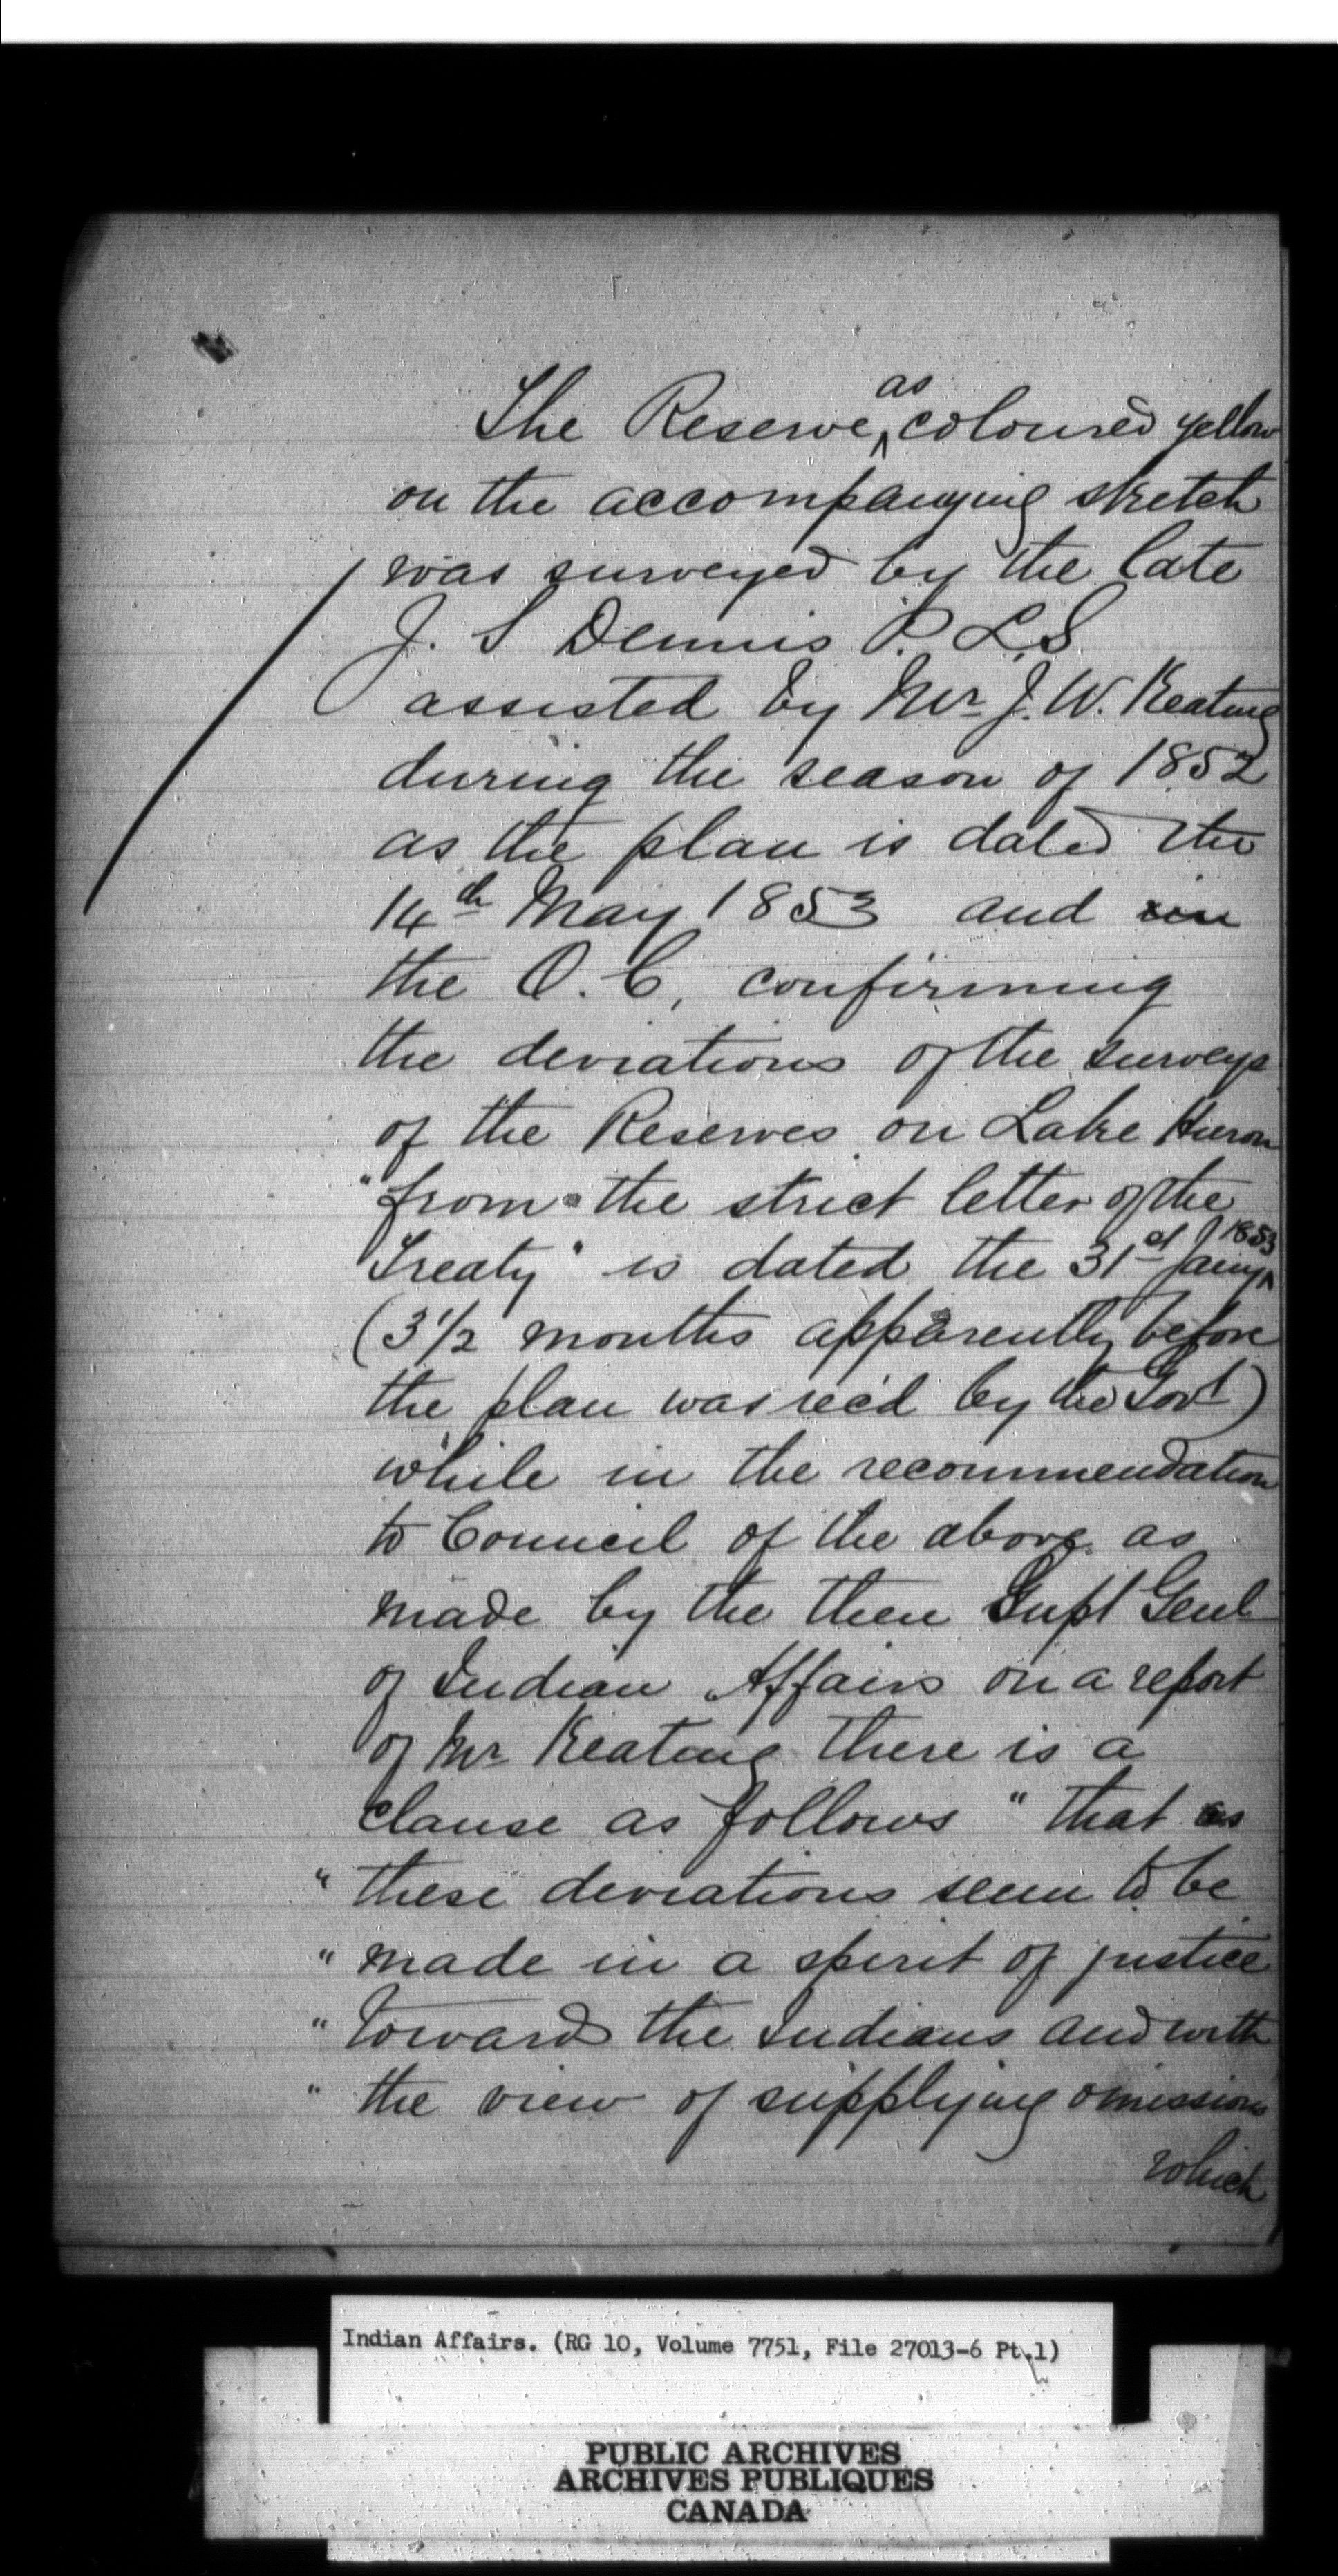 The Reserve, as coloured yellow
on the accompanying sketch
was surveyed by the late
J. S Dennis P. L. S
assisted by Mr J. W. Keating
during the season of 1852
as the plan is dated the
14th May 1853 and in
the O. C, confirming
the deviations of the surveys
of the Reserves on Lake Huron
"from the strict letter of the
Treaty" is dated the 31st Jany 1853
(3 1/2 months apparently before
the plan was rec'd by the Govt)
while in the recommendation
to Council of the above as
made by the then Supt Genl
of Indian Affairs on a report
of Mr Keating there is a
clause as follows "that as
" these deviations seem to be
" made in a spirit of justice
" toward the Indians and with
" the view of supplying omissions
which
Indian Affairs. (RG 10, Volume 7751, File 27013-6 Pt.1)
PUBLIC ARCHIVES
ARCHIVES PUBLIQUES
CANADA